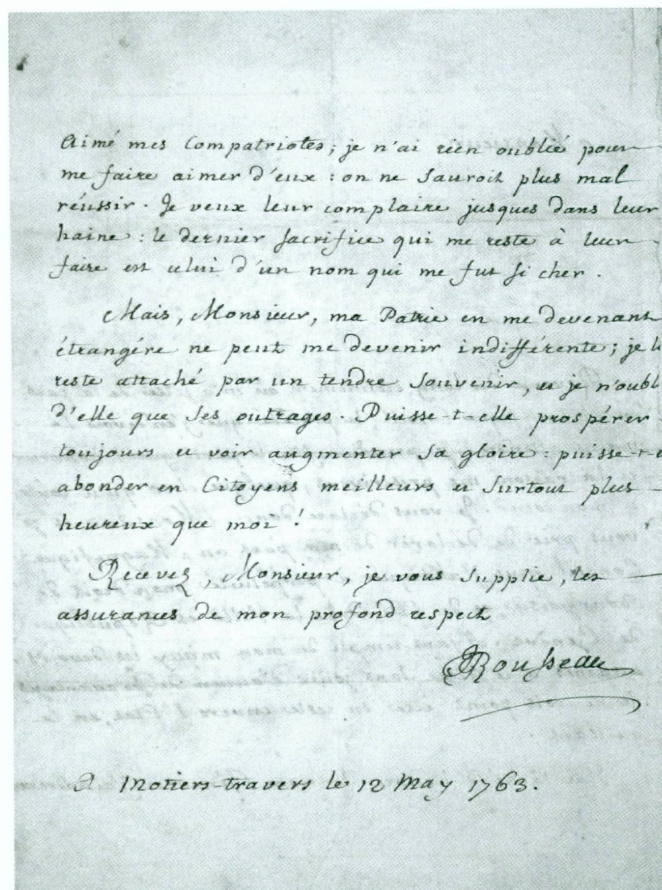 Aimé mes Compatriotes; je n'ai rien oublié pour
me faire aimer d'eux : on ne sauroit plus mal
réussir. Je veux leur complaire jusques dans leur
haine : le dernier sacrifice qui me reste à leur
faire est celui d'un nom qui me fut si cher.
Mais, Monsieur, ma Patrie en me devenant
étrangére ne peut me devenir indifférente; je l
reste attaché par un tendre souvenir, et je n'oubl
d'elle que ses outrages. Puisse-t-elle prospérer
toujours et voir augmenter sa gloire : puisse-t-e
abonder en Citoyens meilleurs et surtout plus
heureux que moi !
Recevez, Monsieur, je vous supplie, les
assurances de mon profond respect
JJRousseau
A Motiers-travers le 12 May 1763.